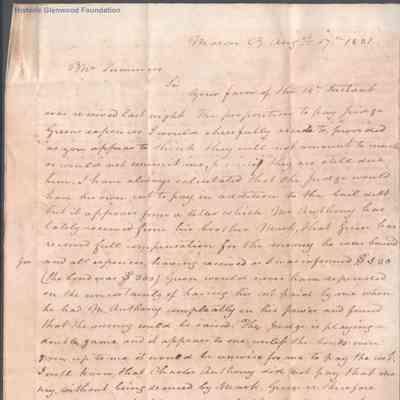 Historic Glenwood Foundation
Macon Augst 17th 1831
Mr
Sir
Your favor of the 14th Instant
was received last night The proposition to pay Judge
Greens expenses I would cheerfully accede to provided
as you appear to think they will not amount to much
or would not commit me, if they are still due
him, I have always calculated that the Judge would
have his own cost to pay in addition to the bail debt
but it appears from a letter which Mr Anthony has
lately received from his brother Mark, that Green has
received full compensation for the money he was bound
for and all expences, having received as I was informed $500
(the bond was $300) Green would never have depended
on the uncertainty of having his cost paid by me when
he had M. Anthony completely in his power and found
that the money could be raised. The Judge is playing a
double game and it appears to me, untill the bonds were
given up to me it would be unwise for me to pay the cost.
I well know, that Charles Anthony did not pay that mo
ney, without being desired by Mark, Green therefore